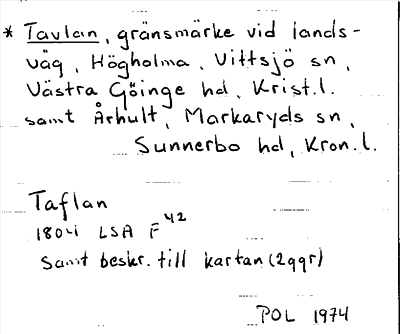 * Tavlan, gränsmärke vid lands-
väg, Högholma, Vittsjö sn,
Västra Göinge hd, Krist.l.
samt Århult, Markaryds sn,
Sunnerbo hd, Kron.l.
Taflan
1804 LSA F 42
Samt beskr. till kartan (2ggr)
POL 1974